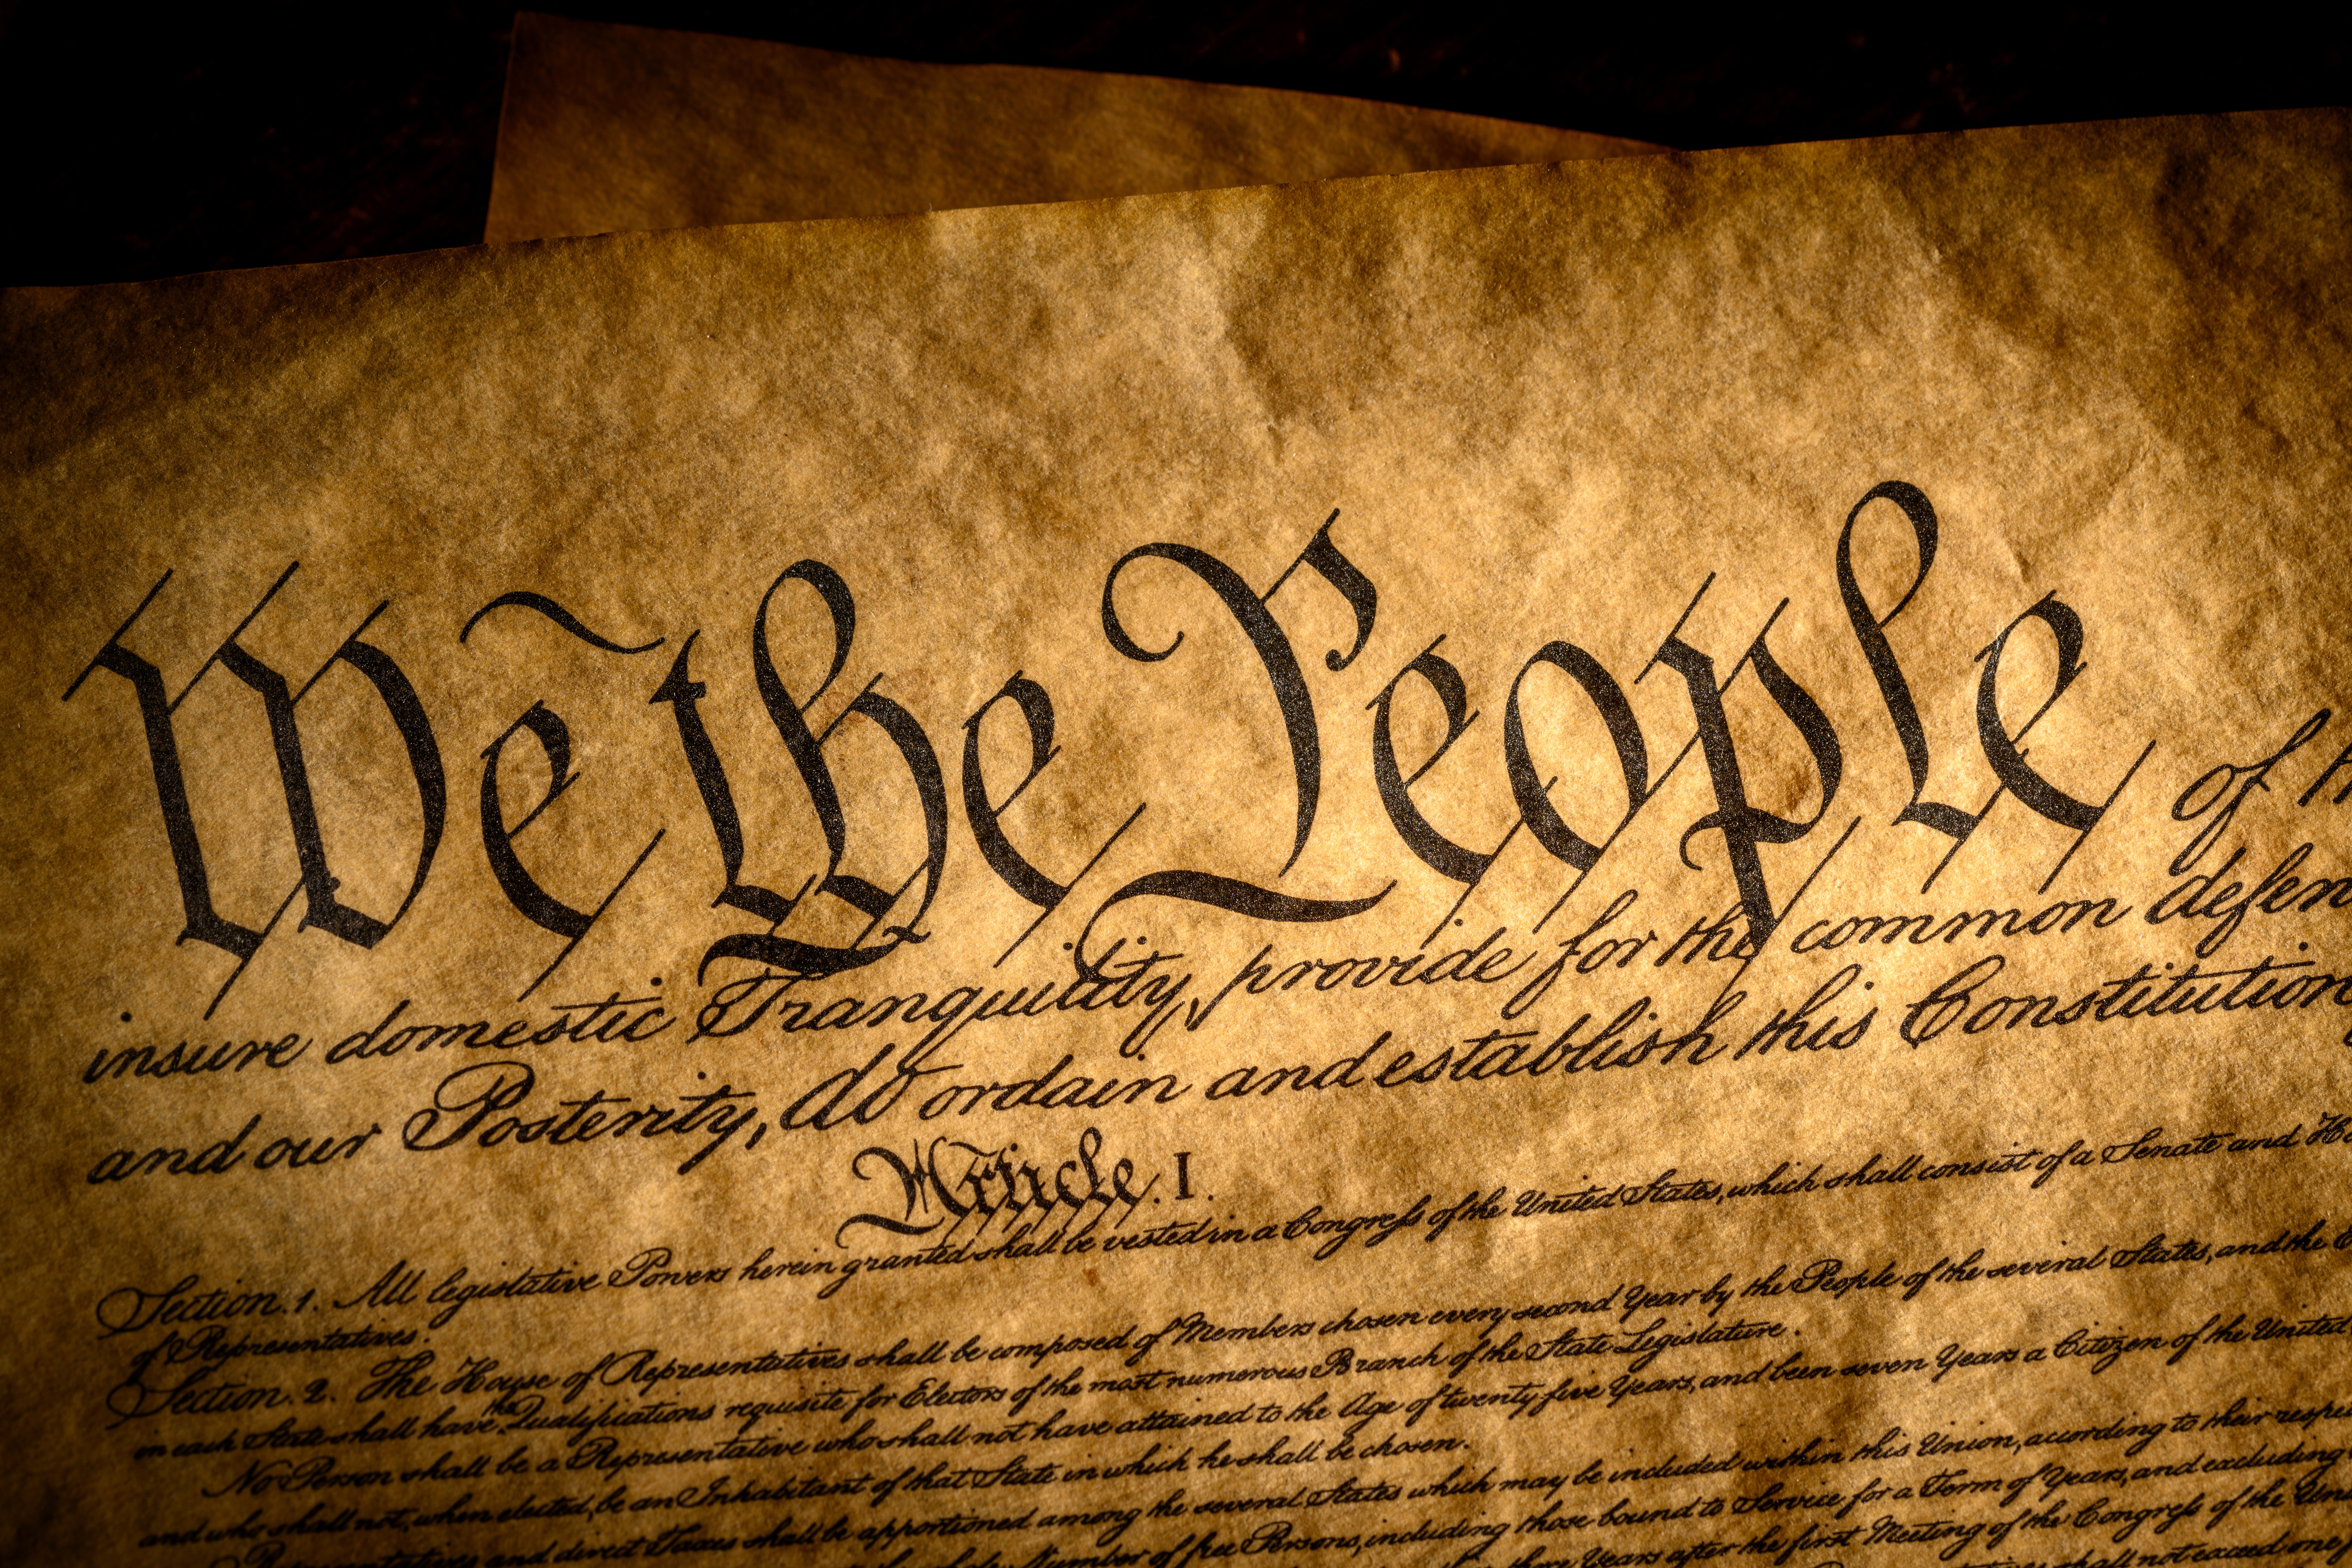 We the People of th
insure domestic Tranquility, provide for the common defen
and our Posterity, do ordain and establish this Constitution
Article. I.
Section. 1. All legislative Powers herein granted shall be vested in a Congress of the United States, which shall consist of a Senate and Ho
of Representatives.
Section. 2. The House of Representatives shall be composed of Members chosen every second Year by the People of the several States, and the E
in each State shall have the Qualifications requisite for Electors of the most numerous Branch of the State Legislature.
No Person shall be a Representative who shall not have attained to the Age of twenty five Years, and been seven Years a Citizen of the United
and who shall not, when elected, be an Inhabitant of that State in which he shall be chosen.
Representatives and direct Taxes shall be apportioned among the several States which may be included within this Union, according to their respe
whole Number of free Persons, including those bound to Service for a Term of Years, and excluding
three Years after the first Meeting of the Congress of the Un
shall not exceed one